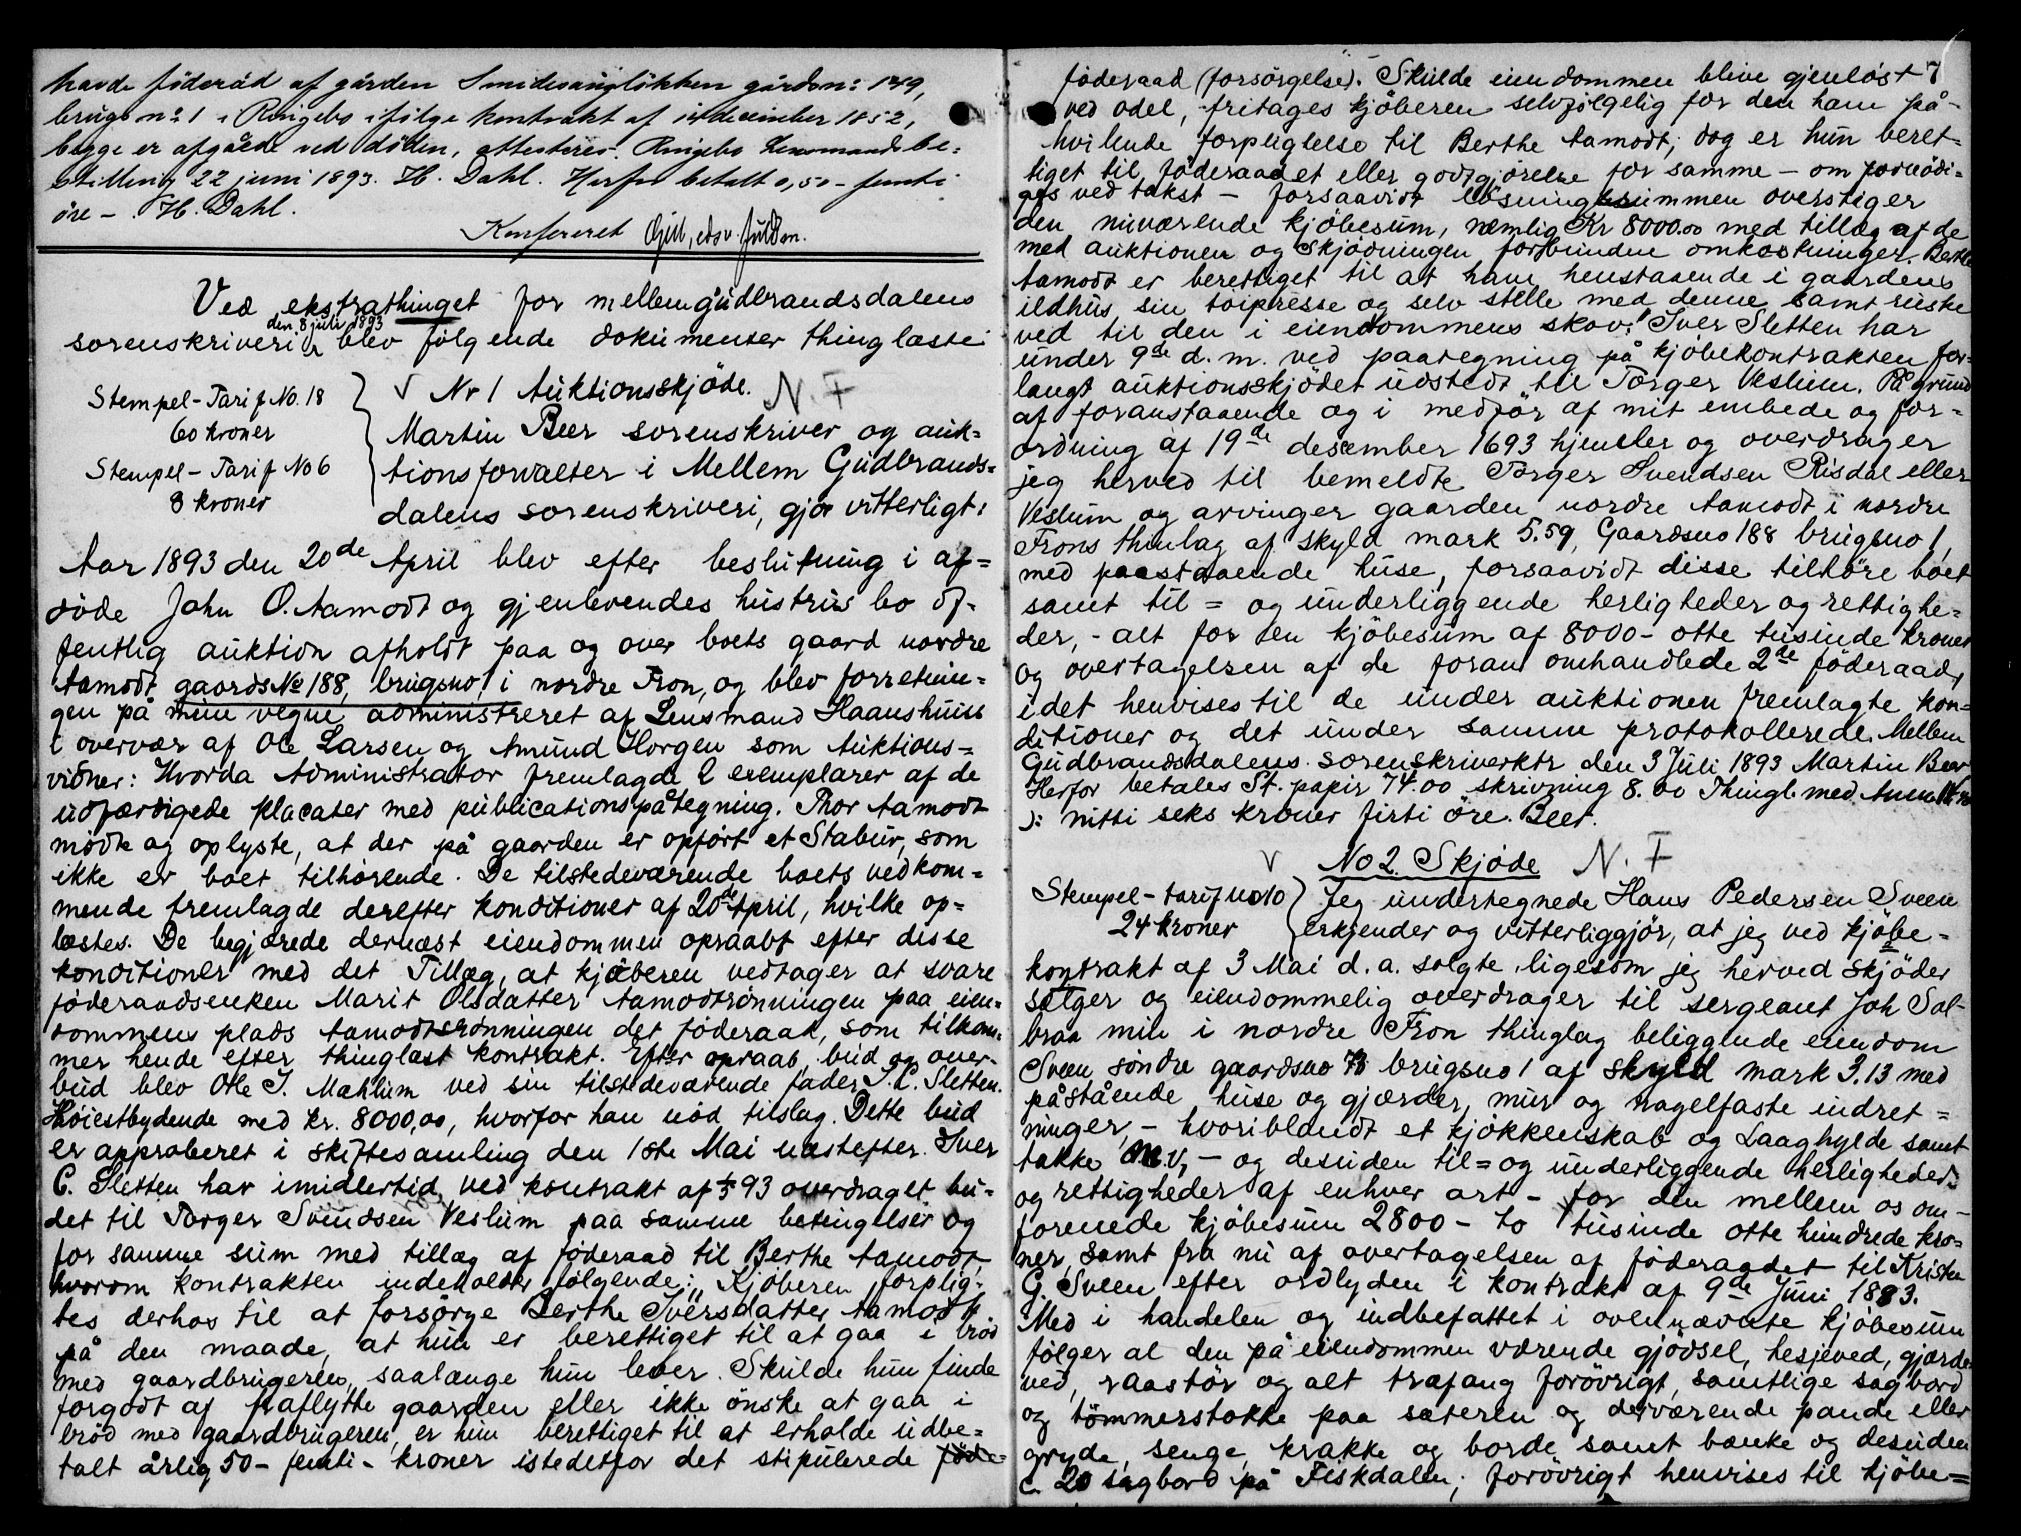 havde föderåd af gården Smidesangslökken gårdsn: 149,
brugsnº 1 i Ringebo ifölge kontrakt af december 1852,
begge er afgåede ved döden, attesteres. Ringebo Lensmandsbe=
stilling 22 juni 1893. H. Dahl. Herfor betalt 0,50 - femti
öre -. H. Dahl.
Konfereret
Ved ekstrathinget for mellem gudbrandsdalens
den 8 juli 1893
sorenskriveri blev fölgende dokumenter thinglæste:
Stempel-Tarif No. 18
60 kroner
Stempel-Tarif No 6
8 kroner
√ Nr 1 Auktionsskjöde. N. F
Martin Beer sorenskriver og auk=
tionsforvalter i Mellem Gudbrands=
dalens sorenskriveri, gjör vitterligt:
Aar 1893 den 20de April blev efter beslutning i af=
döde John O. Aamodt og gjenlevendes hustrus bo of-
fentlig auktion afholdt paa og over boets gaard nordre
Aamodt gaards No 188, brugsno 1 i nordre Fron, og blev forretnin=
gen på mine vegne administreret af Lensmand Haanshuus
i overvær af Ole Larsen og Amund Horgen som Auktions=
vidner: Hvorda Administrator fremlagde 2 exemplarer af de
udfærdigede placater med publicationspåtegning. Thor Aamodt
mödte og oplyste, at der på gaarden er opfört et Stabur, som
ikke er boet tilhörende. De tilstedeværende boets vedkom=
mende fremlagde derefter konditioner af 20de April, hvilke op=
læstes. De begjærede dernæst eiendommen opraabt efter disse
konditioner med det Tillæg, at kjöberen vedtager at svare
föderaadsenken Marit Olsdatter Aamodtrönningen paa eien=
dommens plads Aamodtsrönningen det föderaad, som tilkom=
mer hende efter thinglæst kontrakt. Efter opraab, bud og over-
bud blev Ole I. Mæhlum ved sin tilstedeværende fader I. C. Sletten.
Höiestbydende med kr. 8000,00, hvorfor han nöd tilslag. Dette bud
er approberet i skiftesamling den 1ste Mai næstefter. Iver
C. Sletten har imidlertid ved kontrakt af 93 overdraget bu-
det til Torger Svendsen Veslum paa samme betingelser og
for samme sum med tillæg af föderaad til Berthe Aamodt,
hvorom kontrakten indeholder fölgende: „Kjöberen forplig-
tes derhos til at forsörge Berthe Iversdatter Aamodt
på den maade, at hun er berettiget til at gaa i bröd
med gaardbrugeren, saalænge hun lever. Skulde hun finde
forgodt af fraflytte gaarden eller ikke önske at gaa i
bröd med gaardbrugeren, er hun berettiget til at erholde udbe=
talt årlig 50 - femti - kroner istedetfor det stipulerede föde=
föderaad (forsörgelse). Skulde eiendommen blive gjenlöst 7
ved odel, fritages kjöberen selvfölgelig for den ham på-
hvilende forpligtelse til Berthe Aamodt, dog er hun beret-
tiget til föderaadet eller godtgjörelse for samme - om fornödi=
ges ved takst - forsaavidt lösningssummen overstiger
den nuværende kjöbesum, nemlig Kr 8000.00 med tillæg af de
med auktionen og Skjödningen forbunden omkostninger. Berthe
Aamodt er berettiget til at have henstaaende i gaardens
ildhus sin toipresse og selv stelle med denne samt ruske
ved til den i eiendommens skov." Iver Sletten har
under 9de d. m. ved paategning på kjöbekontrakten for-
langt auktionsskjödet udstedt til Torger Veslum. På grund
af foranstaaende og i medför af mit embede og for=
ordning af 19de desember 1693 hjemler og overdrager
jeg herved til bemeldte Torger Svendsen Risdal eller
Veslum og arvinger gaarden nordre Aamodt i nordre
Frons thinlag af skyld mark 5.59, Gaardsno 188 brugsno 1,
med paastaaende huse, forsaavidt disse tilhöre boet
samt til = og underliggende herligheder og rettighe=
der, - alt for en kjöbesum af 8000 - otte tusinde kroner
og overtagelsen af de foran omhandlede 2de föderaad,
idet henvises til de under auktionen fremlagte kon=
ditioner og det under samme protokollerede. Mellem
Gudbrandsdalens sorenskriverktr den 3 Juli 1893 Martin Beer
Herfor betales St. papir 74.00 skrivning 8.00 Thingl. med
): nitti seks kroner firti öre. Beer.
√ No 2. Skjöde N. F
Stempel-tarif no 10
24 kroner
Jeg undertegnede Hans Pedersen Sveen
erkjender og vitterliggjör, at jeg ved kjöbe-
kontrakt af 3 Mai d. a. solgte, ligesom jeg herved skjöder
sælger og eiendommelig overdrager til sergeant Joh Sol-
braa min i nordre Fron thinglag beliggende eiendom
Sveen söndre gaardsno 73 brugsno 1 af skyld mark 3.13 med
påstående huse og gjærder, mur og nagelfaste indret=
ninger, - hvoriblandt et kjökkenskab og Laaghylde samt
takke m.v, - og desuden til = og underliggende herligheder
og rettigheder af enhver art - for den mellem os om-
forenede kjöbesum 2800 - to tusinde otte hundrede kro=
ner, samt fra nu af overtagelsen af föderaadet til Kristen
G. Sveen efter ordlyden i kontrakt af 9de Juni 1883.
Med i handelen og indbefattet i ovennævnte kjöbesum
fölger al den på eiendommen værende gjödsel, hesjeved, gjærde-
ved, raastör og alt træfang foröovrigt, samtlige sagbord
og tömmerstokke paa sæteren og derværende pande eller
gryde, senge, krakke og borde samt bænke og desuden
c. 20 sagbord på Fiskdalen; forövrigt henvises til kjöbe=